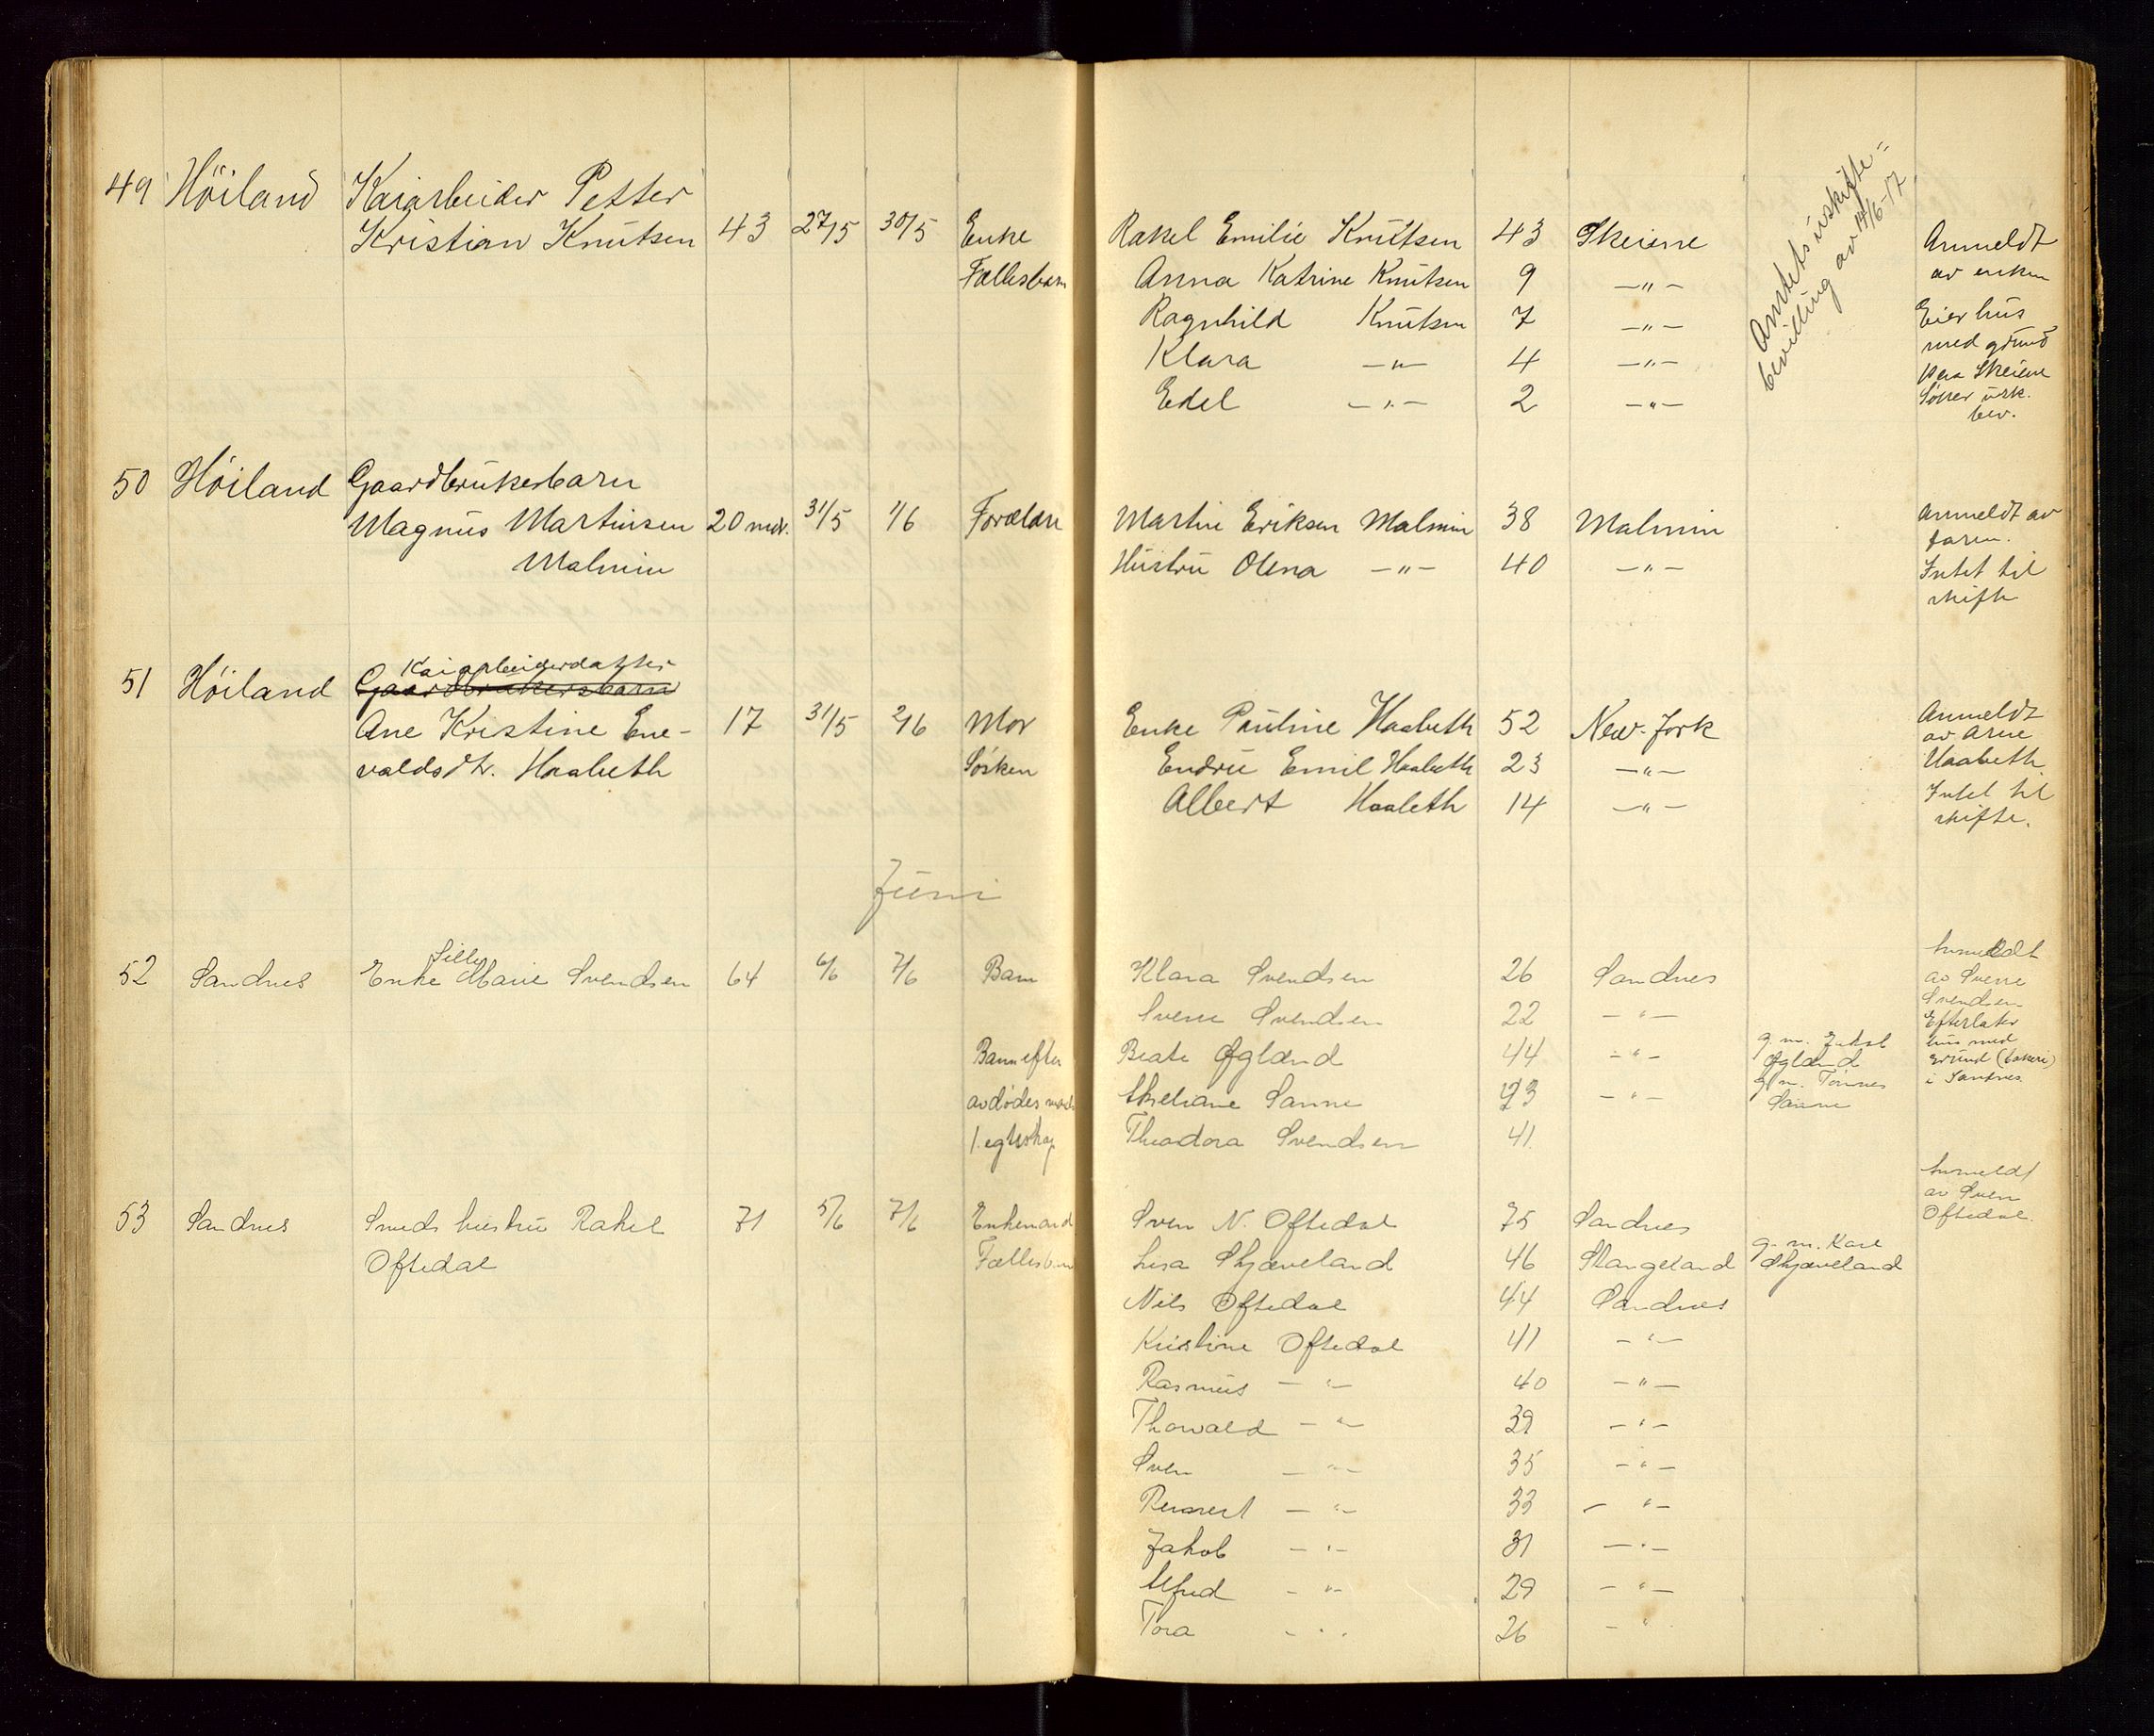 49 Höiland Kaiarbeider Petter
Kristian Knutsen 43 27/5 30/5 Enke Rakel Emilie Knutsen 43 Skeiene Anmeldt
Fællesbarn Anna Katrine Knutsen 9 —"— av enken
Ragnhild Knutsen 7 —"— Eier hus
Klara —"— 4 —"— med grund
paa Skeiene
Edel —"— 2 —"— Söker usk.
bev.
Amtets uskifte=
bevilling av 14/6-17
50 Höiland Gaardbrukerbarn
Magnus Martinsen 20 mdr. 31/5 1/6 Forældre Martin Eriksen Malmin 38 Malmin Anmeldt av
faren.
Malmin Hustru Olena —"— 40 —"— Intet til
skifte
51 Höiland Kaiarbeiderdatter
Gaardbrukersbarn
Ane Kristine Ene- 17 31/5 2/6 Mor Enke Pauline Haabeth 52 New-Jork Anmeldt
av Arne
valdsdtr. Haabeth Søsken Endru Emil Haabeth 23 —"— Haabeth
Albert Haabeth 14 —"— Intet til
skifte.
Juni
52 Sandnes Enke Silly Marie Svendsen 64 6/6 7/6 Barn Klara Svendsen 26 Sandnes Anmeldt
av Sverre
Sverre Svendsen 22 —"— Svendsen
Efterlater
Barn efter Beate Øgland 44 —"— g. m. Jakob hus med
Øgland grund (bakeri)
avdødes mands Sanne 43 —"— g. m. Tönnes i Sandnes.
Sanne
1. egteskap Theodora Svendsen 41
53 Sandnes Smeds hustru Rakel 71 5/6 7/6 Enkemand Sven N. Oftedal 75 Sandnes Anmeldt
av Sven
Oftedal.
Oftedal Fællesbarn Lisa Skjæveland 46 Stangeland g. m. Karl
Skjæveland
Nils Oftedal 44 Sandnes
Kristine Oftedal 41 —"—
Rasmus —"— 40 —"—
Thorvald —"— 39 —"—
Sven —"— 35 —"—
Reinert —"— 33 —"—
Jakob —"— 31 —"—
Alfred —"— 29 —"—
Tora —"— 26 —"